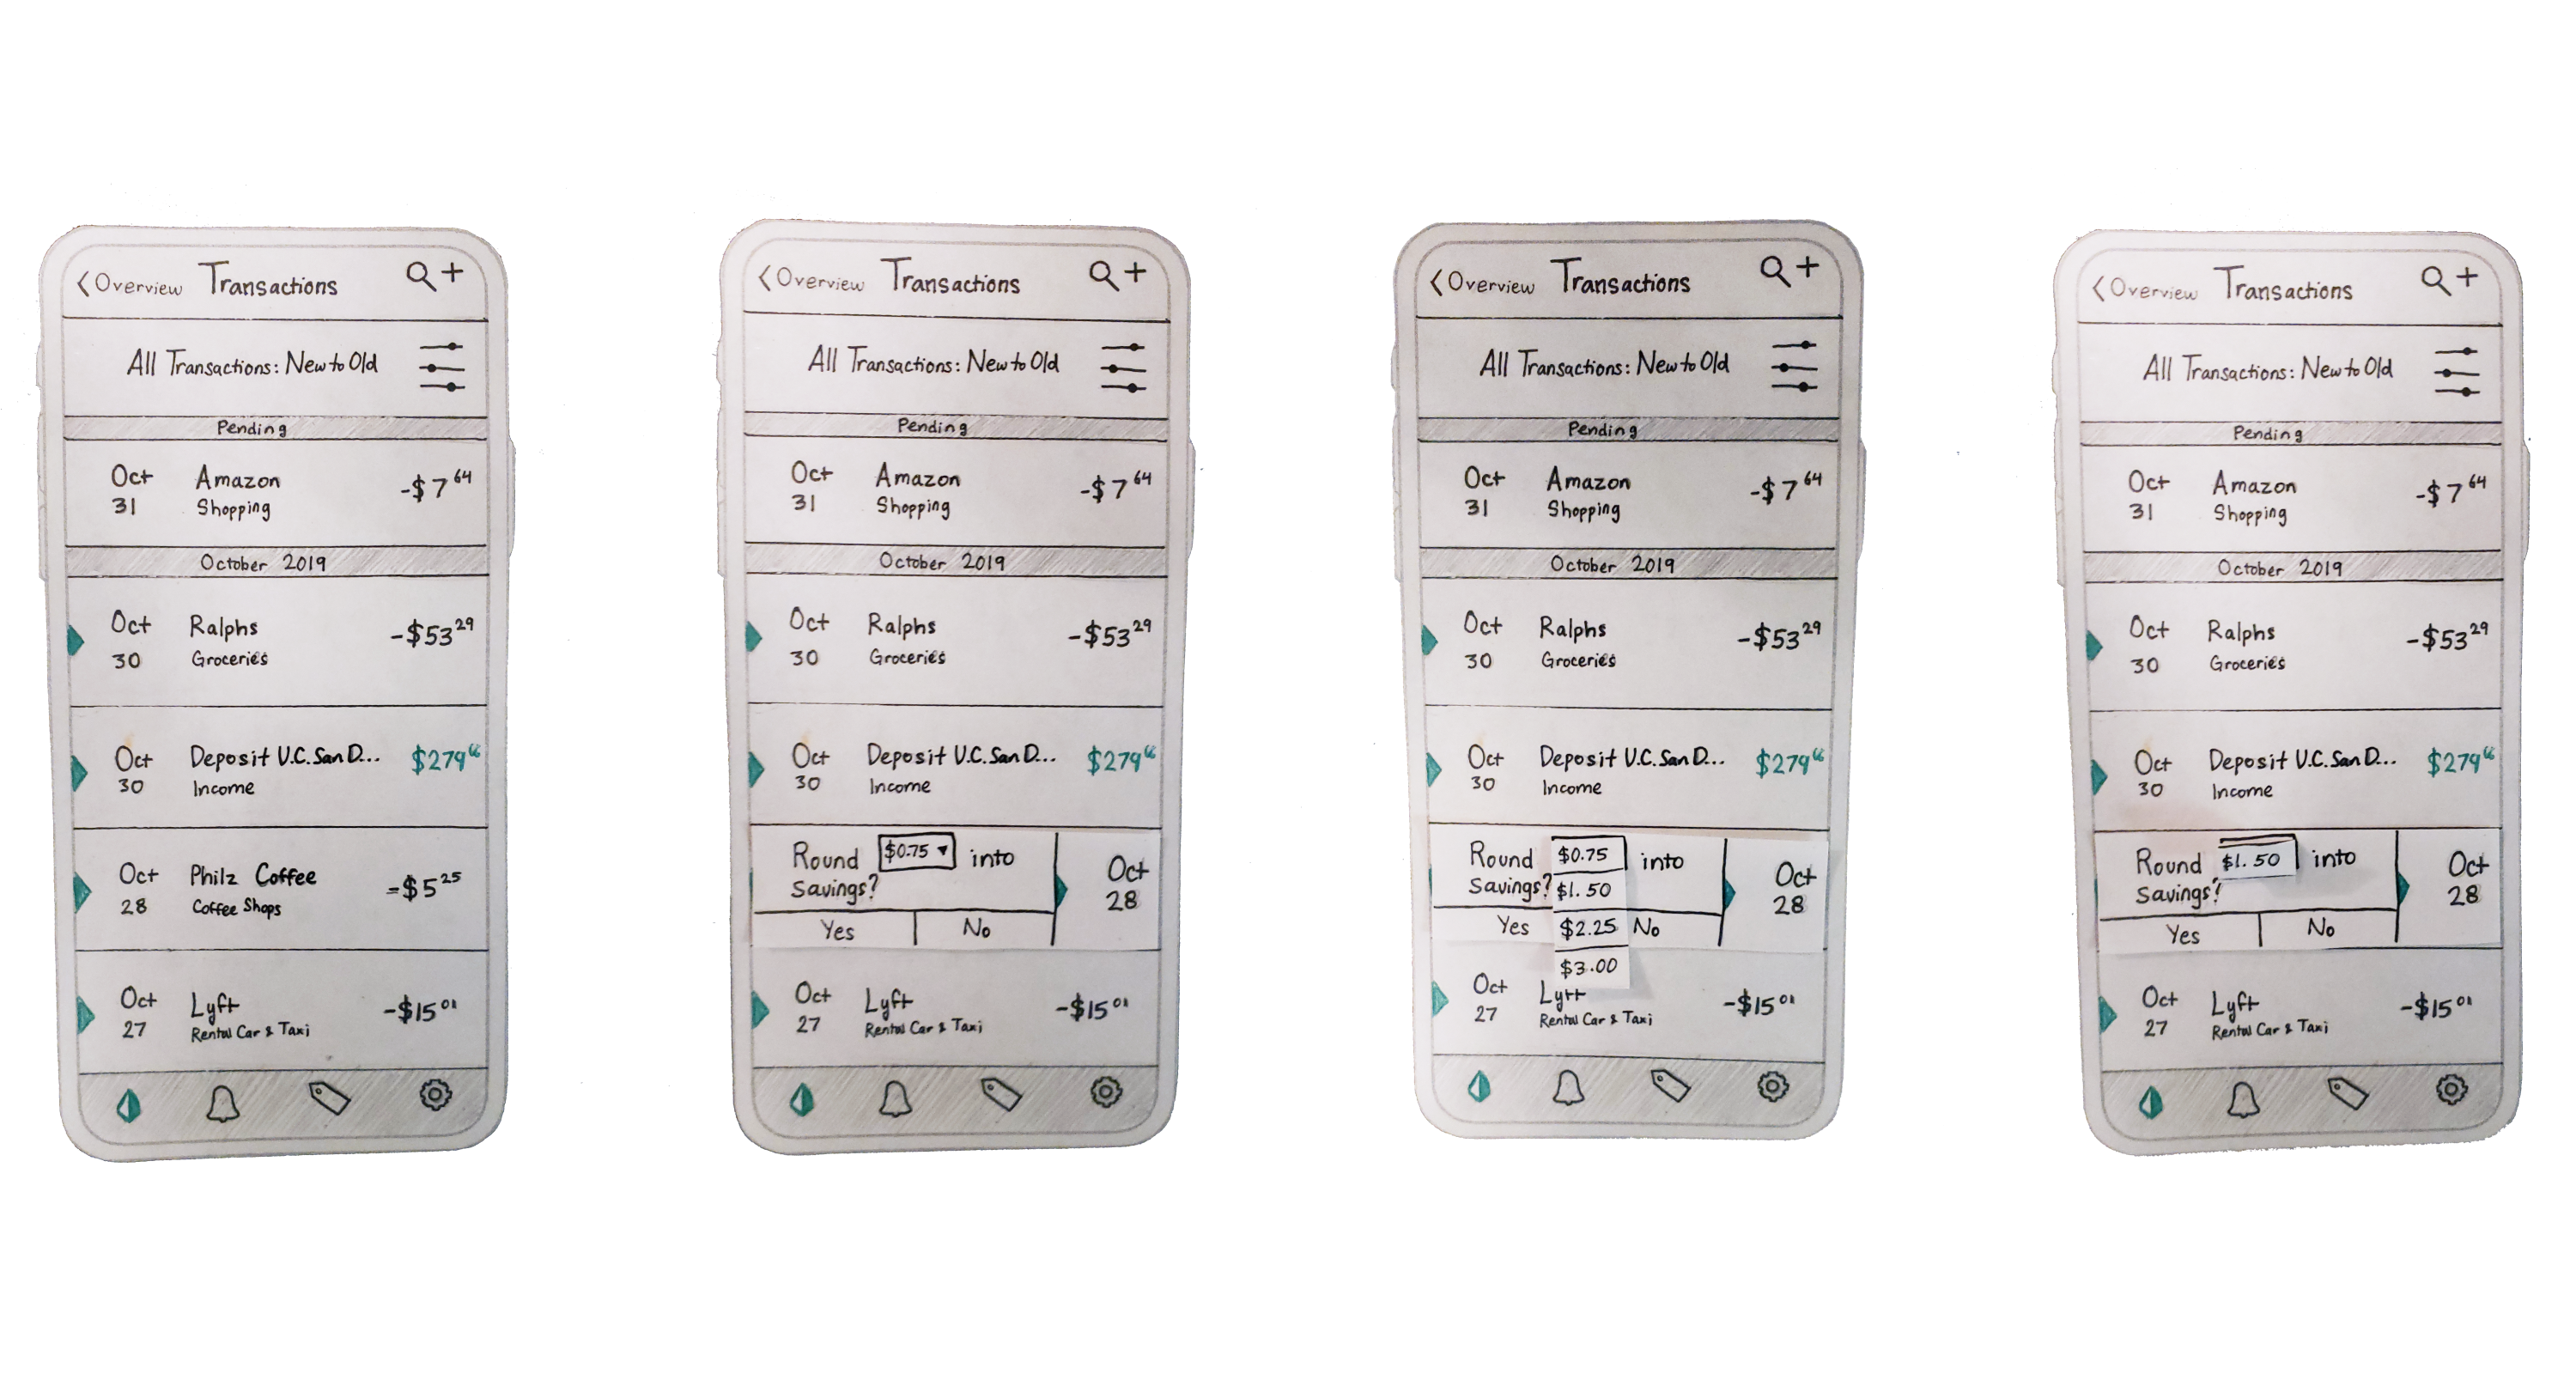 < Overview Transactions +
All Transactions: New to Old
Pending
Oct 31 Amazon -$7 64
Shopping
October 2019
Oct 30 Ralphs -$53 29
Groceries
Oct 30 Deposit U.C. San D... $279 66
Income
Oct 28 Philz Coffee -$5 25
Coffee Shops
Oct 27 Lyft -$15 01
Rental Car & Taxi
< Overview Transactions +
All Transactions: New to Old
Pending
Oct 31 Amazon -$7 64
Shopping
October 2019
Oct 30 Ralphs -$53 29
Groceries
Oct 30 Deposit U.C. San D... $279 66
Income
Round $0.75 ▾ into
Savings?
Yes No
Oct 28
Oct 27 Lyft -$15 01
Rental Car & Taxi
< Overview Transactions +
All Transactions: New to Old
Pending
Oct 31 Amazon -$7 64
Shopping
October 2019
Oct 30 Ralphs -$53 29
Groceries
Oct 30 Deposit U.C. San D... $279 66
Income
Round $0.75 into
Savings? $1.50
Yes $2.25 No
$3.00
Oct 28
Oct 27 Lyft -$15 01
Rental Car & Taxi
< Overview Transactions +
All Transactions: New to Old
Pending
Oct 31 Amazon -$7 64
Shopping
October 2019
Oct 30 Ralphs -$53 29
Groceries
Oct 30 Deposit U.C. San D... $279 66
Income
Round $1.50 into
Savings?
Yes No
Oct 28
Oct 27 Lyft -$15 01
Rental Car & Taxi